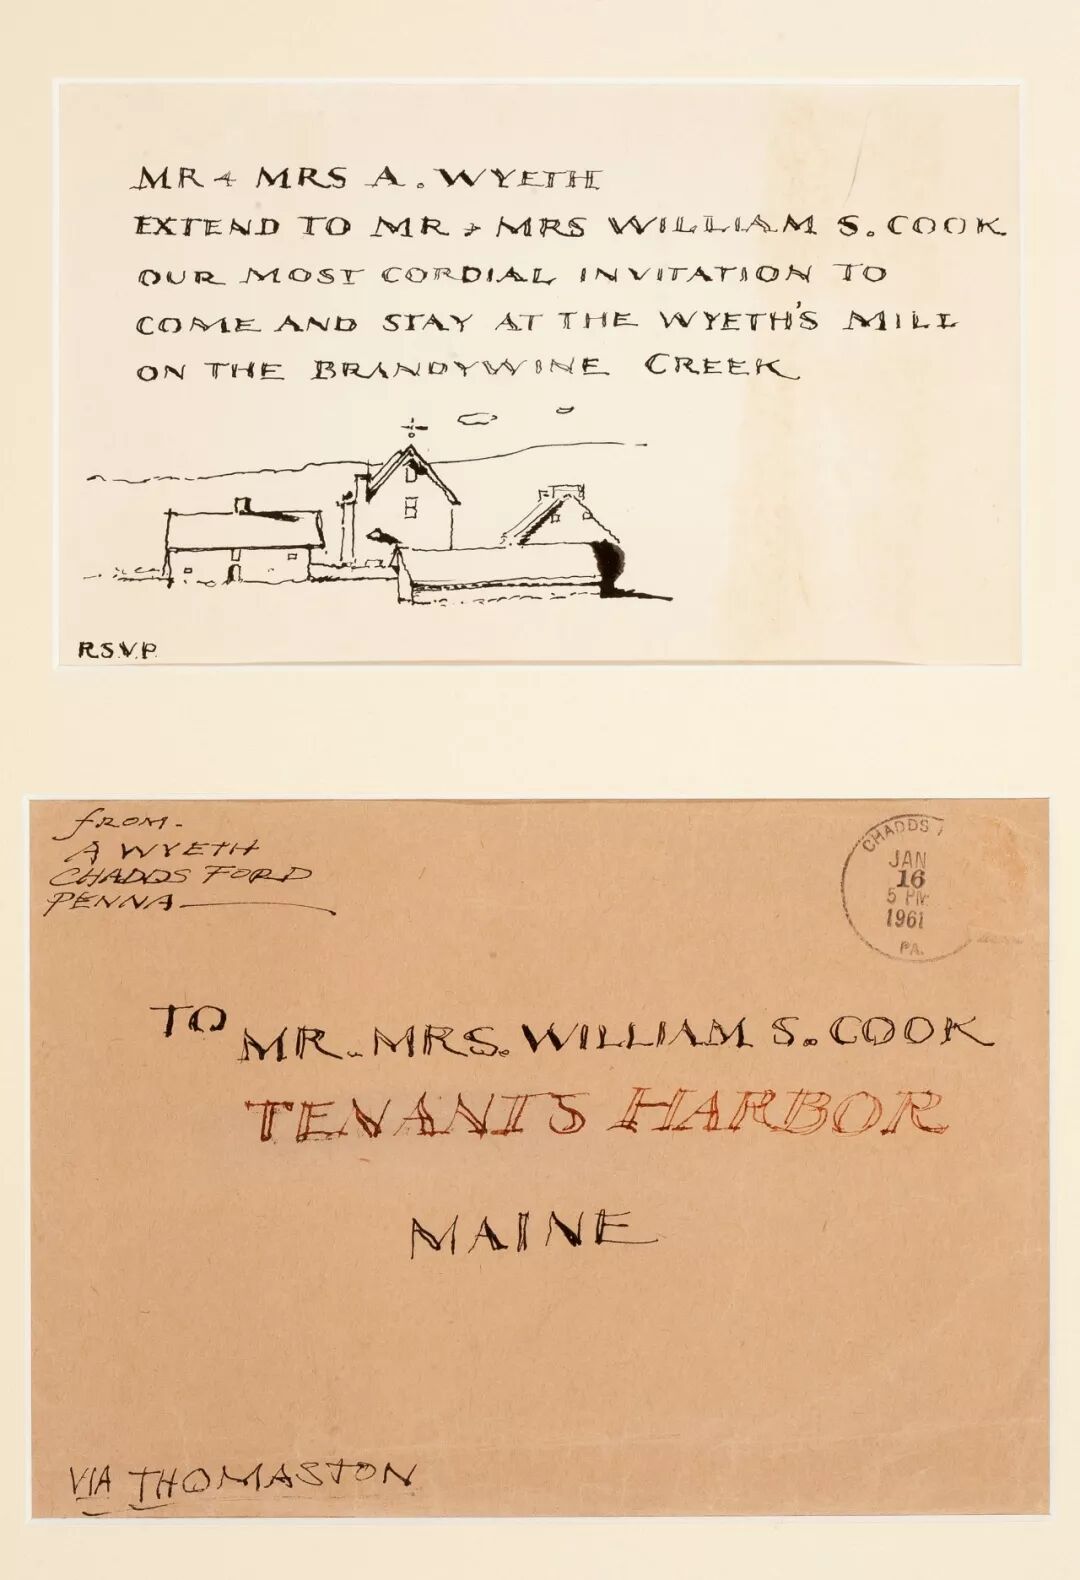 MR & MRS A. WYETH
EXTEND TO MR & MRS WILLIAM S. COOK
OUR MOST CORDIAL INVITATION TO
COME AND STAY AT THE WYETH'S MILL
ON THE BRANDYWINE CREEK
R.S.V.P.
FROM-
A WYETH
CHADDS FORD
PENNA
CHADDS
JAN
16
5 PM
1961
PA.
TO
MR. MRS. WILLIAM S. COOK
TENANTS HARBOR
MAINE
VIA THOMASTON